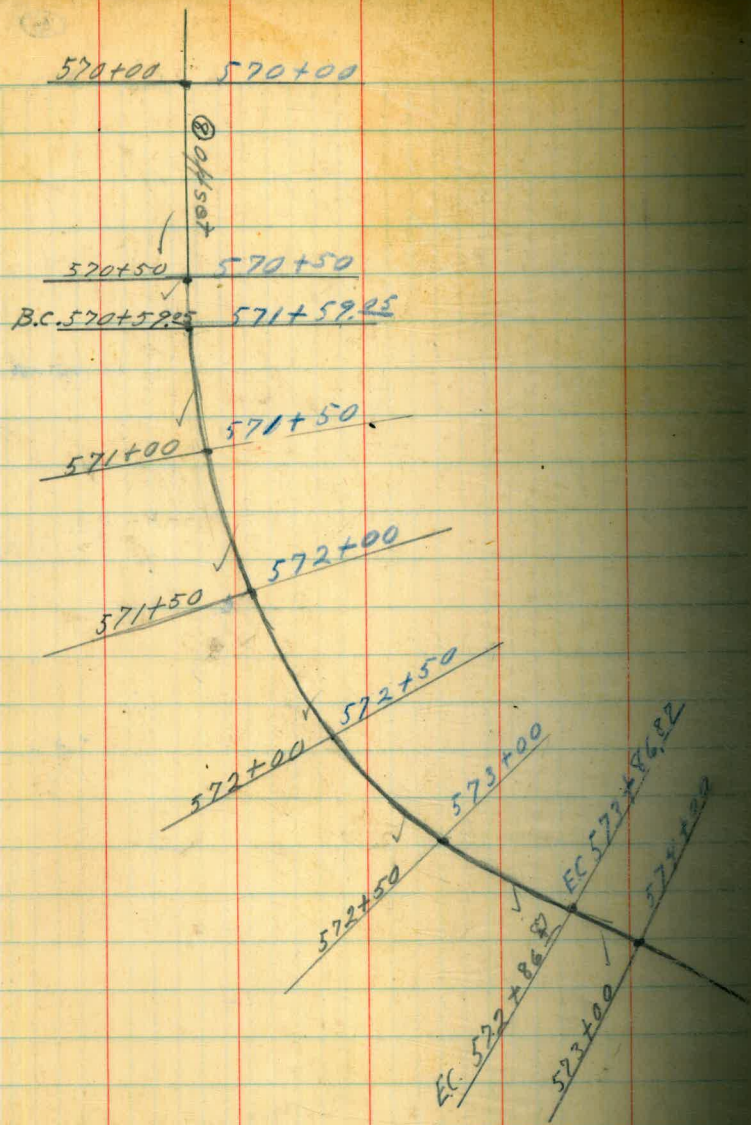 570+00 570+00
② offset
570+50 570+50
B.C. 570+59.05 571+59.05
571+00 571+50
571+50 572+00
572+00 572+50
572+50 573+00
EC 572+86.87 EC 573+86.87
573+00 574+00